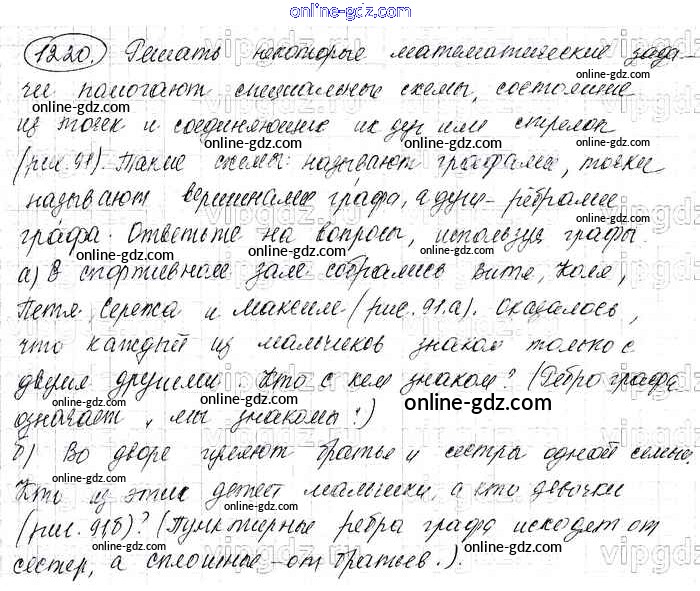 online-gdz.com
1220. Решать некоторые математические зада-
чи помогают специальные схемы, состоящие
online-gdz.com online-gdz.com
из точек и соединяющих их дуг или стрелок
(рис. 91). Такие схемы называют графами, точки
называют вершинами графа, а дуги - ребрами
графа. Ответьте на вопросы, используя графы.
online-gdz.com online-gdz.com
а) В спортивном зале собрались Витя, Коля,
Петя, Сережа и Максим (рис. 91.а). Оказалось,
что каждый из мальчиков знаком только с
двумя другими. Кто с кем знаком? (Ребро графа
online-gdz.com
означает "мы знакомы".)
online-gdz.com
б) Во дворе гуляют братья и сестры одной семьи.
online-gdz.com
Кто из этих детей мальчики, а кто девочки
online-gdz.com
(рис. 91,б)? (Пунктирные ребра графа исходят от
online-gdz.com online-gdz.com
сестер, а сплошные - от братьев.).